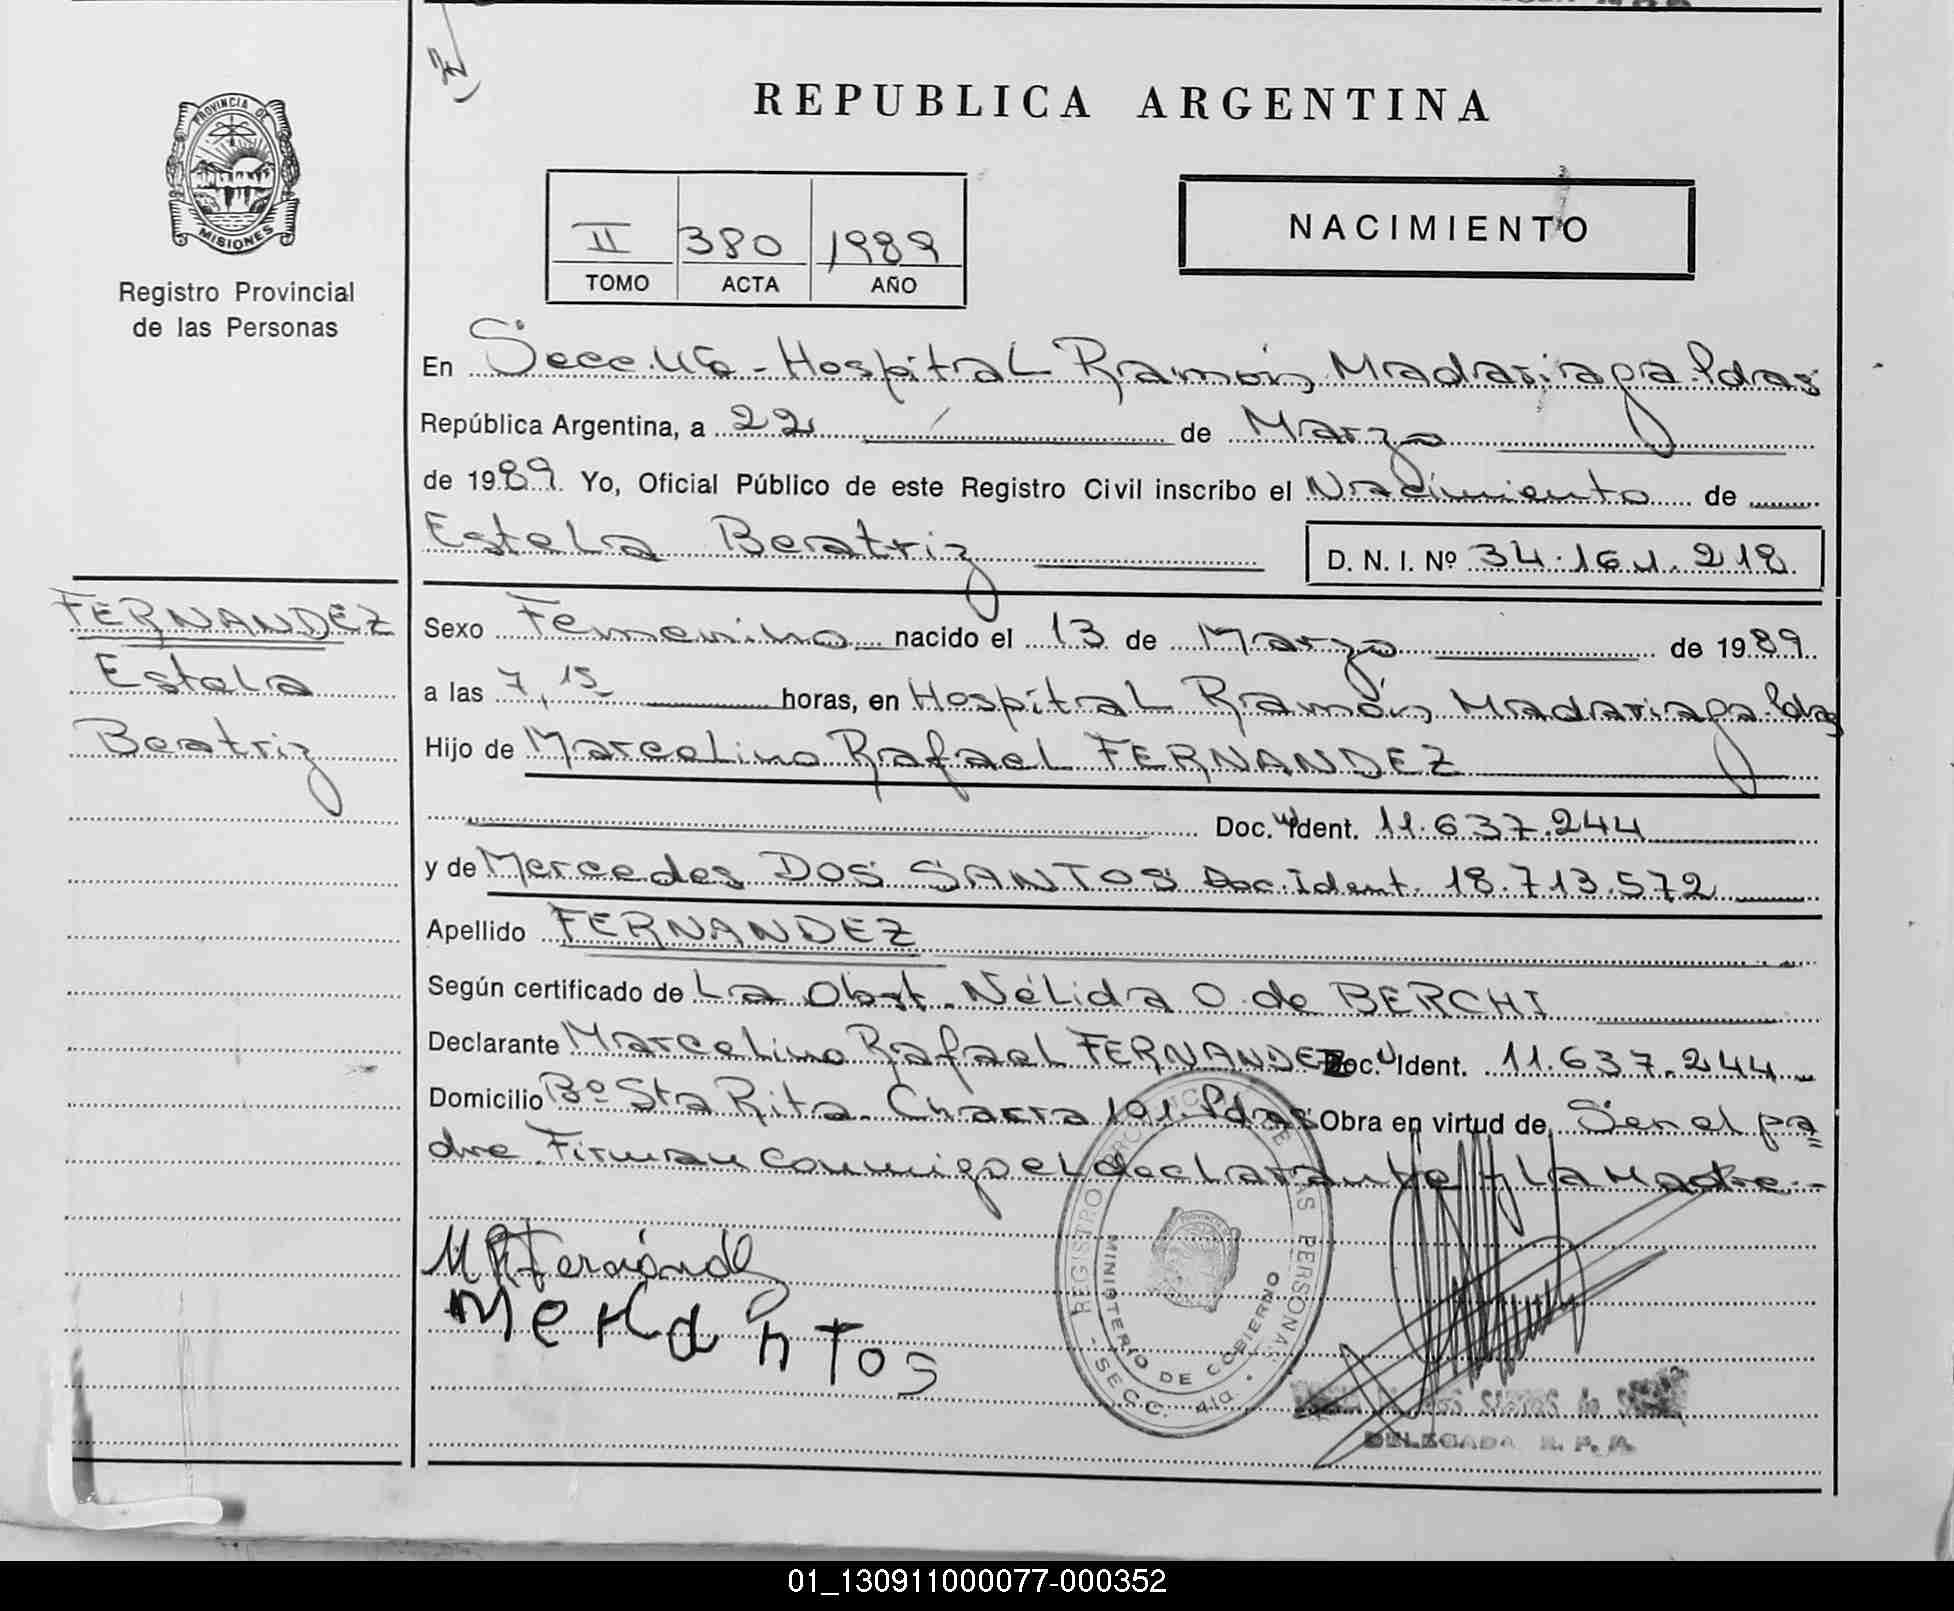 PROVINCIA DE
MISIONES
Registro Provincial
de las Personas
REPUBLICA ARGENTINA
II 380 1989
TOMO ACTA AÑO
NACIMIENTO
En Secc. 4ta - Hospital Ramón Madariaga. Pdas
República Argentina, a 22 de Marzo
de 1989 Yo, Oficial Público de este Registro Civil inscribo el Nacimiento de
Estela Beatriz D. N. I. Nº 34.161.218
FERNANDEZ
Estela
Beatriz
Sexo Femenino nacido el 13 de Marzo de 1989
a las 7,15 horas, en Hospital Ramón Madariaga. Pdas
Hijo de Marcelino Rafael FERNANDEZ
Doc. Ident. 11.637.244
y de Mercedes DOS SANTOS Doc. Ident. 18.713.572
Apellido FERNANDEZ
Según certificado de La Obst. Nélida O. de BERCHI
Declarante Marcelino Rafael FERNANDEZ Doc. Ident. 11.637.244
Domicilio Bº Sta Rita. Chacra 101. Pdas Obra en virtud de Ser el pa=
dre. Firman conmigo el declarante y la Madre.-
M R Fernández
REGISTRO PROVINCIAL DE LAS PERSONAS
MINISTERIO DE GOBIERNO
- SECC. 4ta. -
DELEGADA R. P. P.
01_130911000077-000352